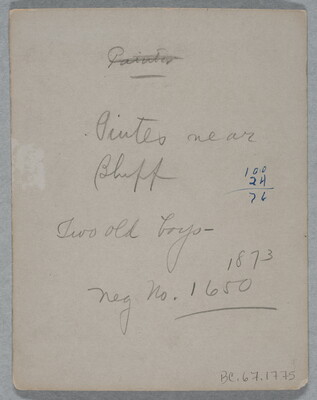 Paiutes
Piutes near
Bluff
100
24
76
Two old boys-
1873
Neg No. 1650
BC.67.1775